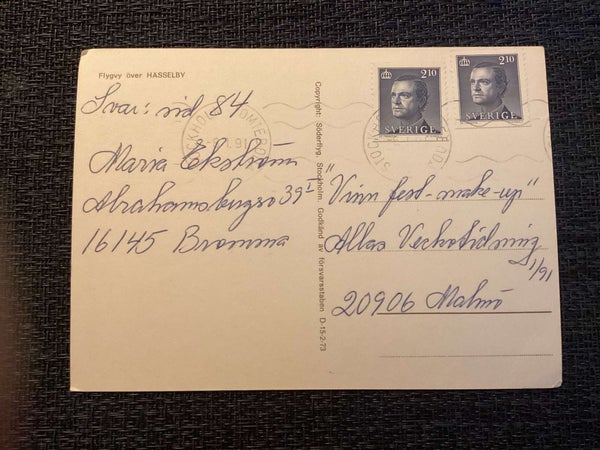 Flygvy över HASSELBY
Svar: sid 84
Maria Ekström
16145 Bromma
Copyright: Söderflyg. Stockholm. Godkänd av försvarsstaben D-15-2-73
2 10
SVERIGE
2 10
SVERIGE
"Vinn fest-make-up"
Allas Veckotidning
1/91
20906 Malmö